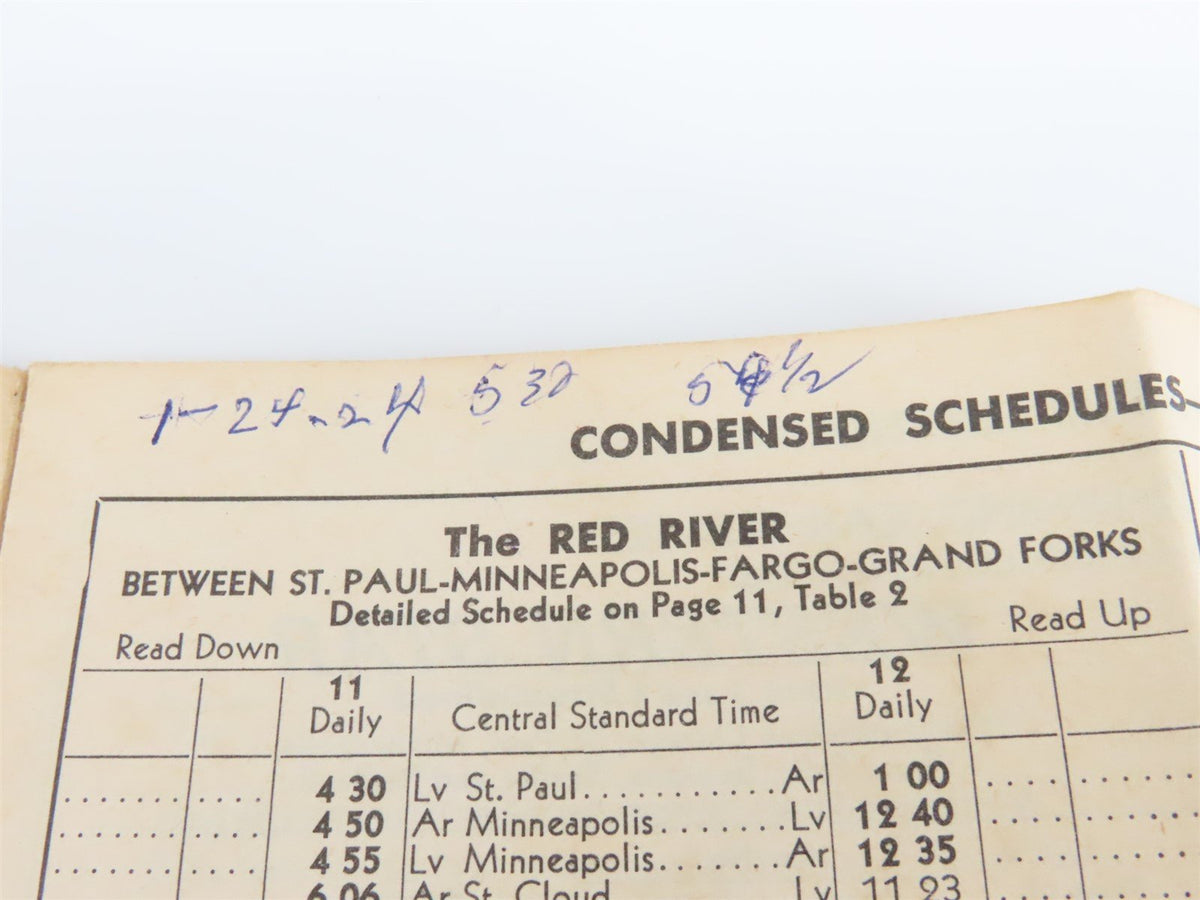 24 532 5 1/2
CONDENSED SCHEDULES
The RED RIVER
BETWEEN ST. PAUL-MINNEAPOLIS-FARGO-GRAND FORKS
Detailed Schedule on Page 11, Table 2
Read Down Read Up
11 Daily Central Standard Time 12 Daily
4 30 Lv St. Paul............Ar 1 00
4 50 Ar Minneapolis.......Lv 12 40
4 55 Lv Minneapolis.......Ar 12 35
6 06 Ar St. Cloud Lv 11 23